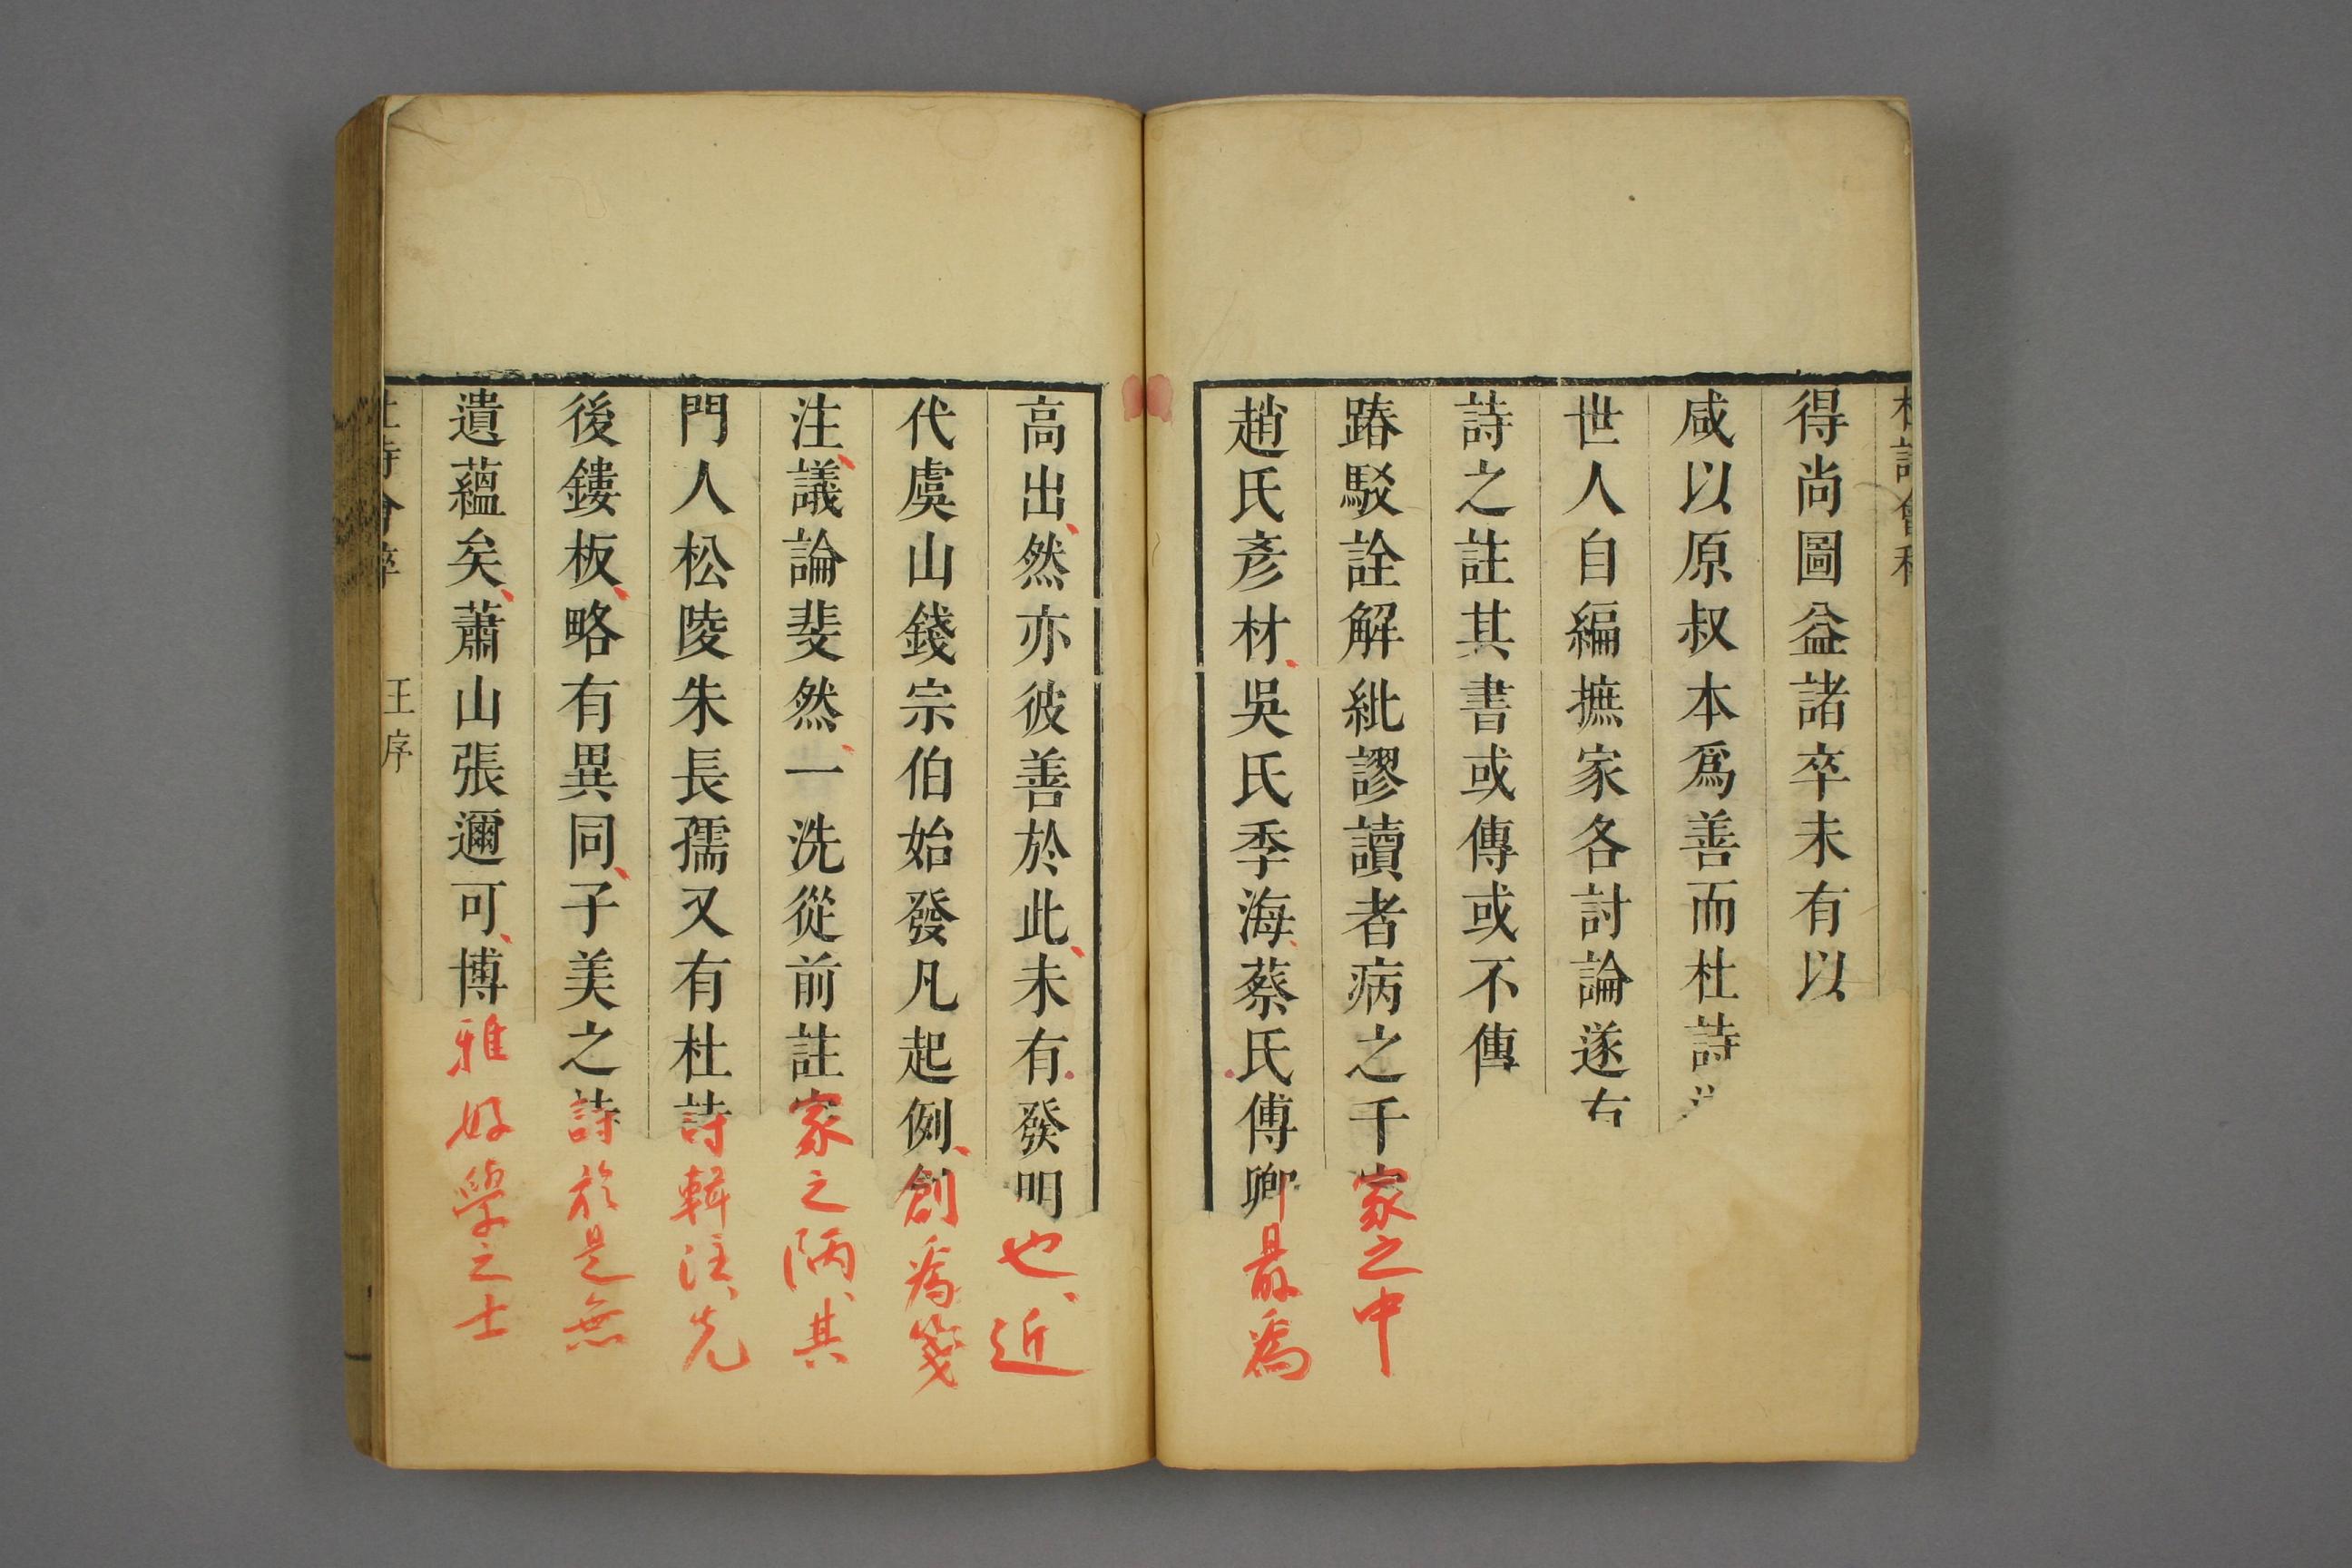 得尚圖益諸卒未有以
咸以原叔本爲善而杜詩
世人自編摭家各討論遂有
詩之註其書或傳或不傳
踳駁詮解紕謬讀者病之千家之中
趙氏彥材吳氏季海蔡氏傅卿最爲
高出然亦彼善於此未有發明也近
代虞山錢宗伯始發凡起例創爲箋
注議論斐然一洗從前註家之陋其
門人松陵朱長孺又有杜詩輯注先
後鏤板略有異同子美之詩於是無
遺蘊矣蕭山張邇可博雅好學之士
杜詩會稡 王序